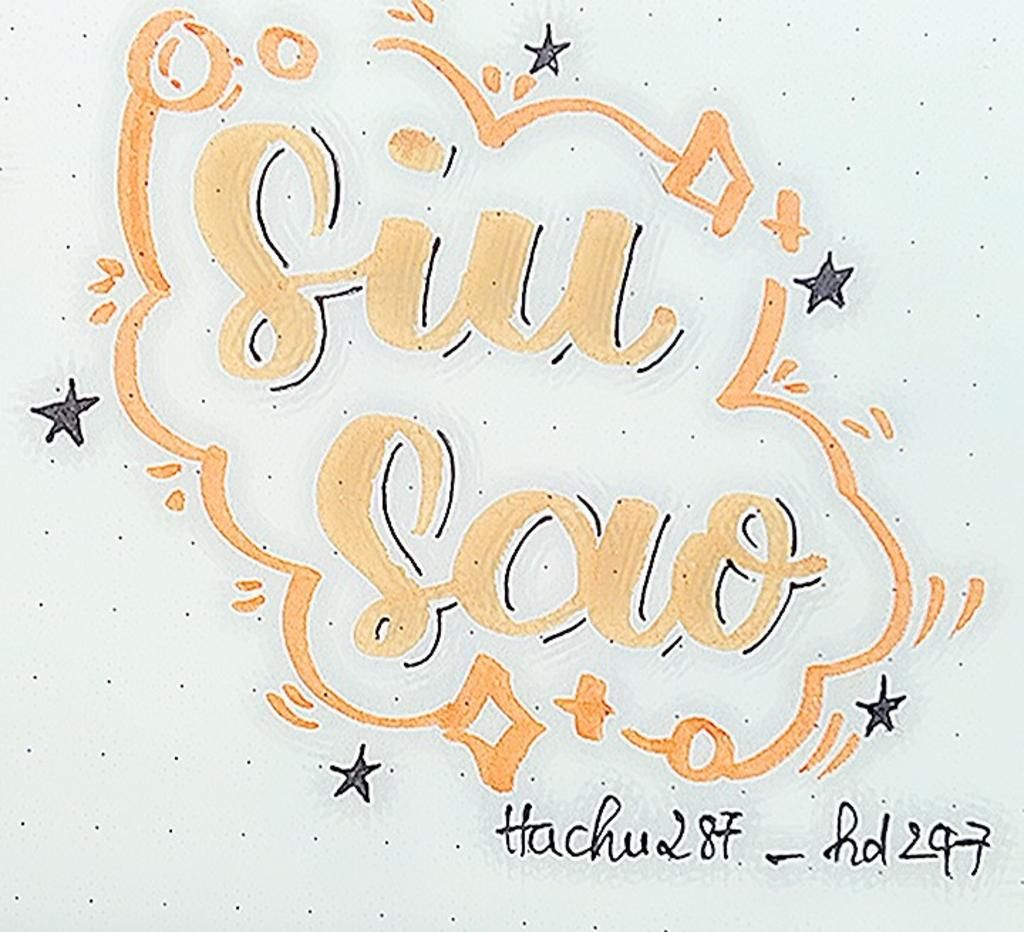 Siu
Sao
Hachu287 _ hd247